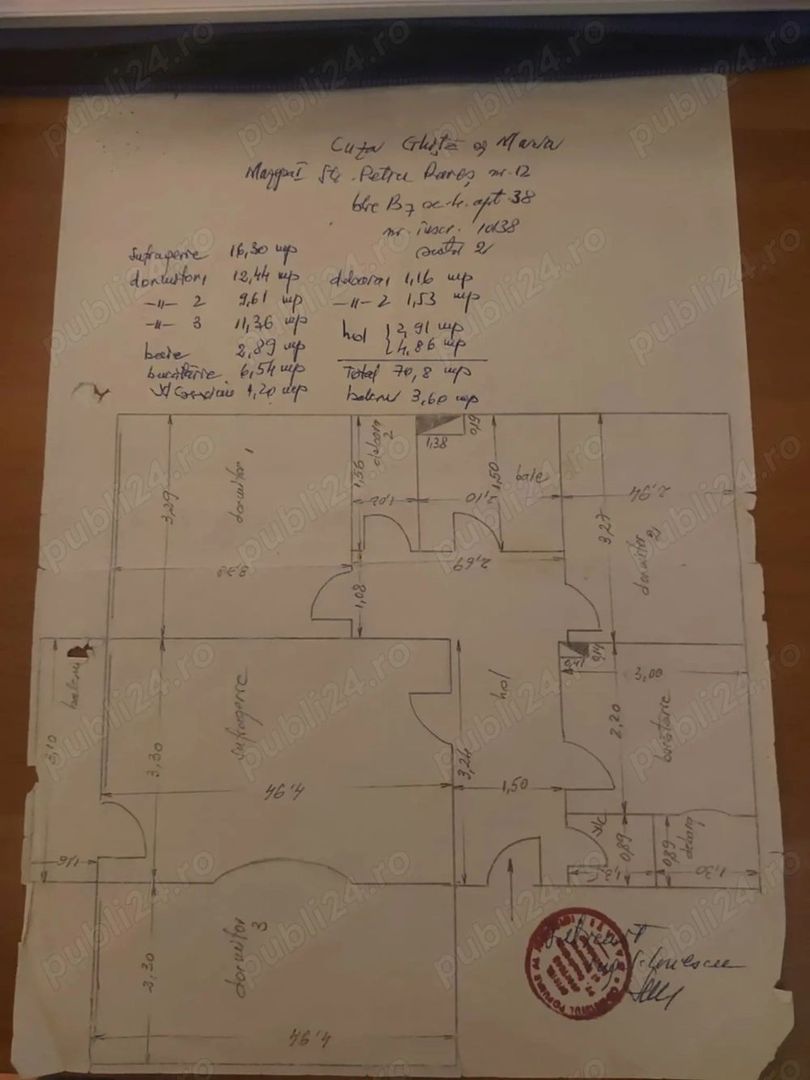 Cuza Ghiță și Maria
Str. Petru Rareș nr. 12
bloc B7 sc. apt 38
nr. înscr. 10138
sufragerie 16,30 mp
dormitor 1 12,44 mp
-"- 2 9,61 mp
-"- 3 11,36 mp
baie 2,89 mp
bucătărie 6,54 mp
1,20 mp
debara 1 1,16 mp
-"- 2 1,53 mp
hol 2,91 mp
4,86 mp
Total 70,8 mp
balcon 3,60 mp
dormitor 1
3,29
3,78
debara 2
1,56
1,02
1,38
0,19
baie
1,50
2,10
dormitor 2
2,94
3,27
2,69
1,08
balcon
3,10
1,16
sufragerie
3,30
4,94
hol
3,24
1,50
0,14
bucătărie
3,00
2,20
0,89
debara 1
0,89
1,30
dormitor 3
2,30
4,94
publi24.ro